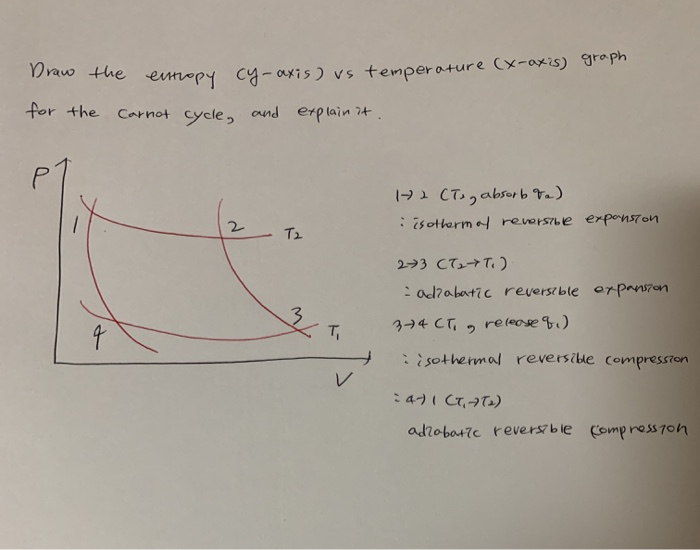 Draw the entropy (y-axis) vs temperature (x-axis) graph
for the Carnot cycle, and explain it.
P
1
2
T₂
3
4
T₁
V
1→2 (T₂, absorb q₂)
: isothermal reversible expansion
2→3 (T₂→T₁)
: adiabatic reversible expansion
3→4 (T₁, release q₁)
: isothermal reversible compression
: 4→1 (T₁→T₂)
adiabatic reversible compression